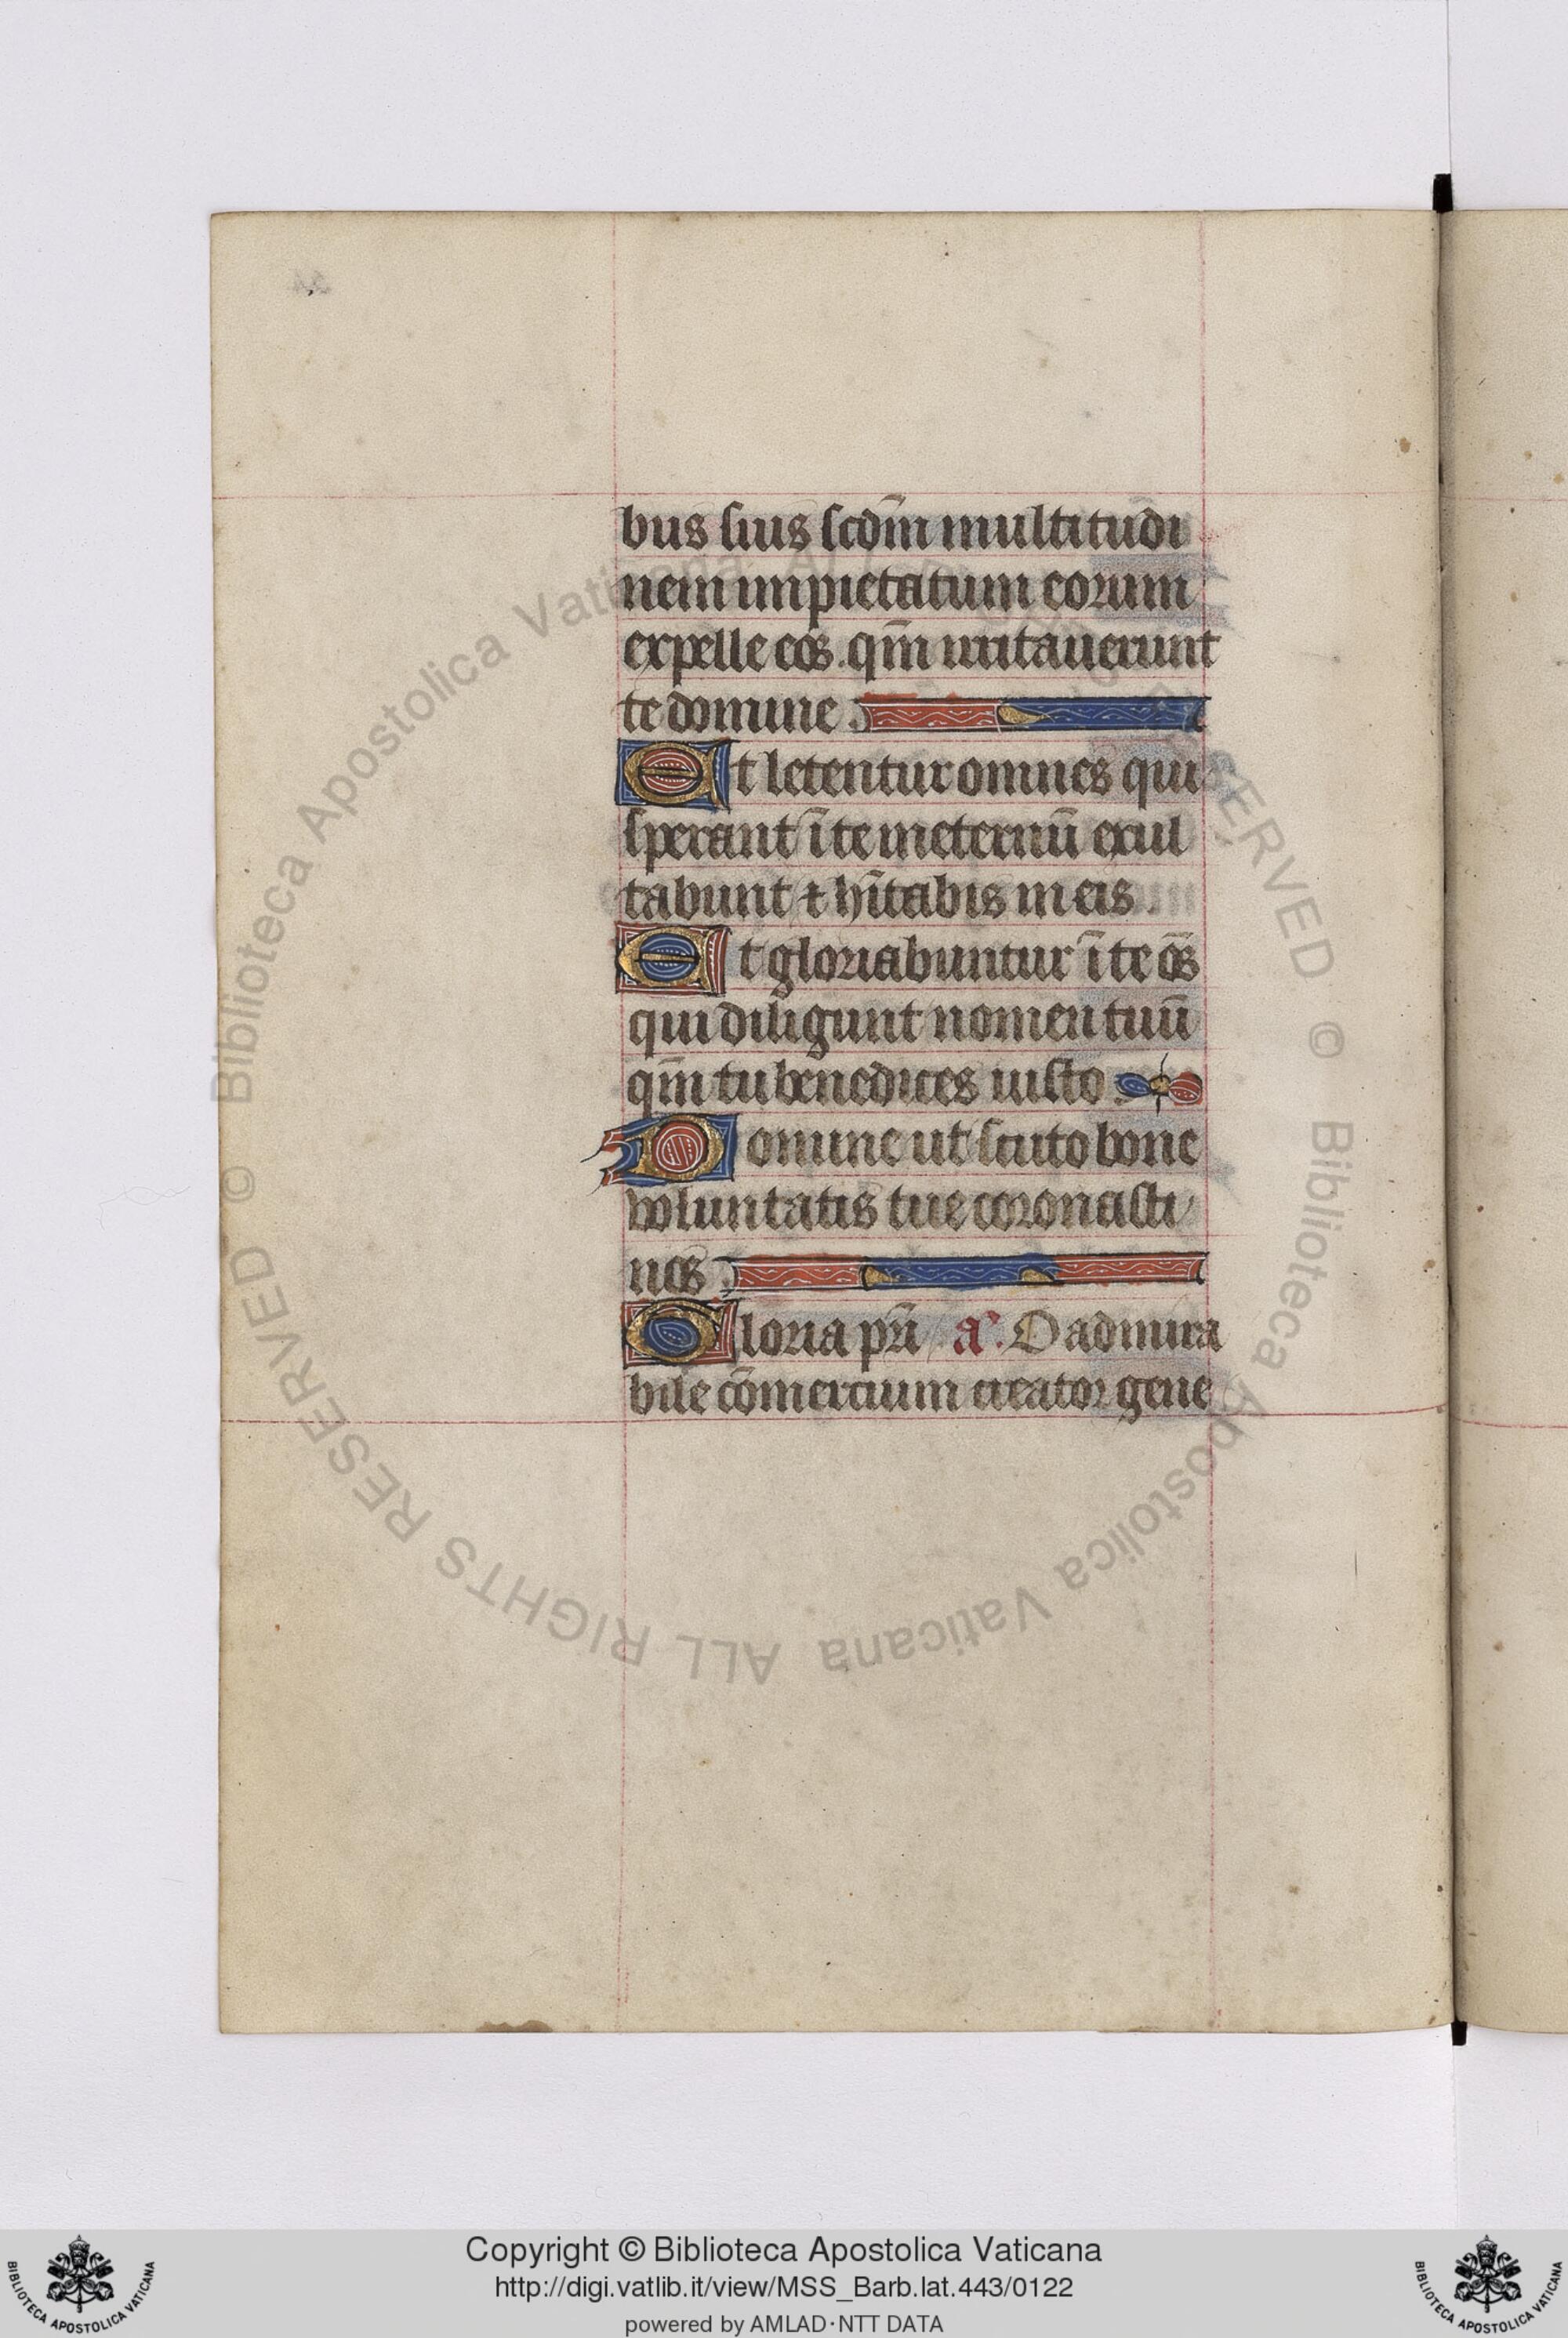 bus suis scdm̄ multitudi
nem impietatum eorum
expelle eos. qm̄ irritauerunt
te domine.
Et letentur omnes qui
sperant ī te ineternū exul
tabunt ⁊ hītabis in eis.
Et gloriabuntur ī te oēs
qui diligunt nomen tuū
qm̄ tu benedices iusto.
Domine ut scuto bone
voluntatis tue coronasti
nos.
Gloria pr̄i. aᵃ. O admira
bile cōmercium creator gene
© Biblioteca Apostolica Vaticana ALL RIGHTS RESERVED © Biblioteca Apostolica Vaticana ALL RIGHTS RESERVED
Copyright © Biblioteca Apostolica Vaticana
http://digi.vatlib.it/view/MSS_Barb.lat.443/0122
powered by AMLAD·NTT DATA
BIBLIOTECA APOSTOLICA VATICANA
BIBLIOTECA APOSTOLICA VATICANA